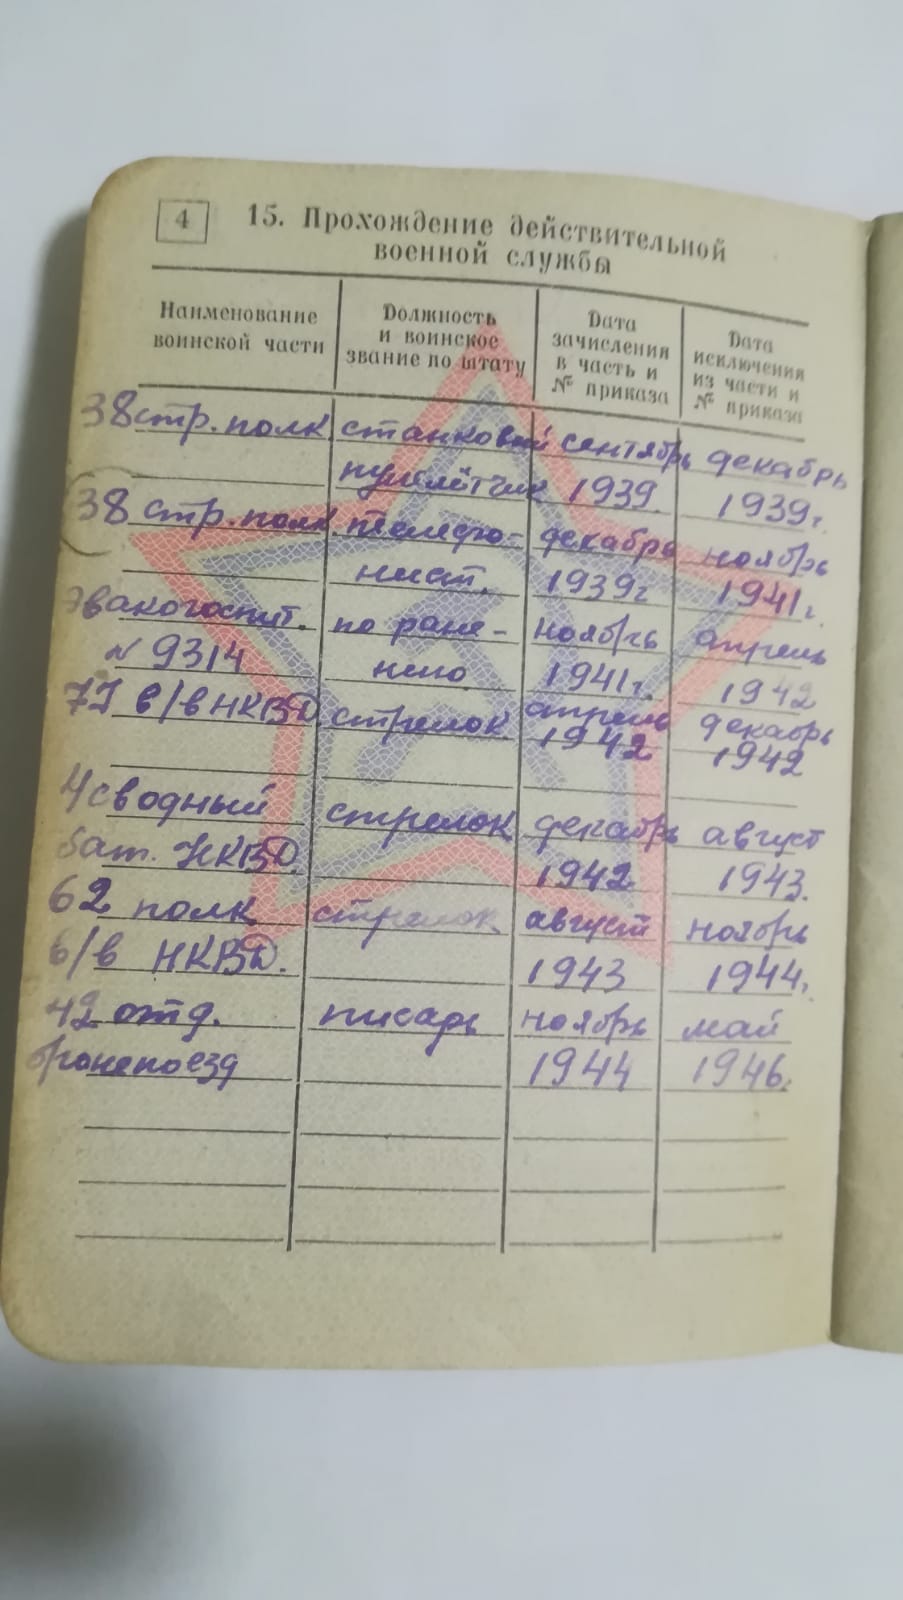 4
15. Прохождение действительной
военной службы
Наименование
воинской части
Должность
и воинское
звание по штату
Дата
зачисления
в часть и
№ приказа
Дата
исключения
из части и
№ приказа
38 стр. полк станковый сентябрь декабрь
пулемётчик 1939. 1939г.
38 стр. полк телефо- декабрь ноябрь
нист. 1939г 1941г.
Эвакогоспит. по ране- ноябрь апрель
№ 9314 нию 1941г. 1942
77 в/в НКВД стрелок апрель декабрь
1942 1942
4 сводный стрелок декабрь август
бат. НКВД. 1942. 1943.
62 полк стрелок август ноябрь
в/в НКВД. 1943 1944.
42 отд. писарь ноябрь май
бронепоезд 1944 1946.